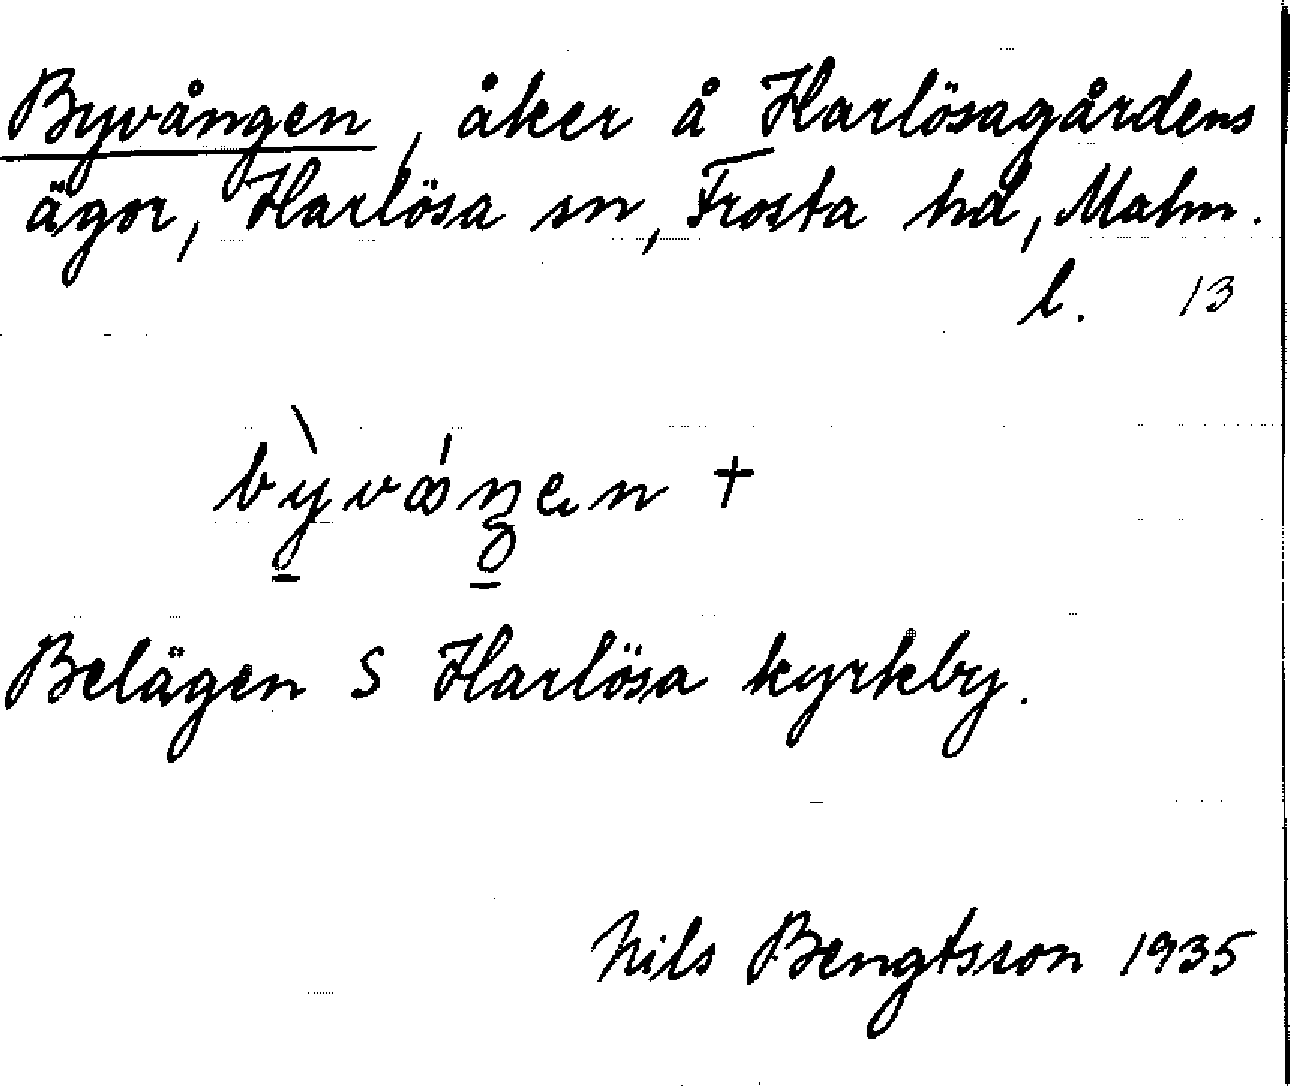 Byvången, åker å Harlösagårdens
ägor, Harlösa sn, Frosta hd, Malm.
l. 13
+
Belägen S Harlösa kyrkby.
Nils Bengtsson 1935